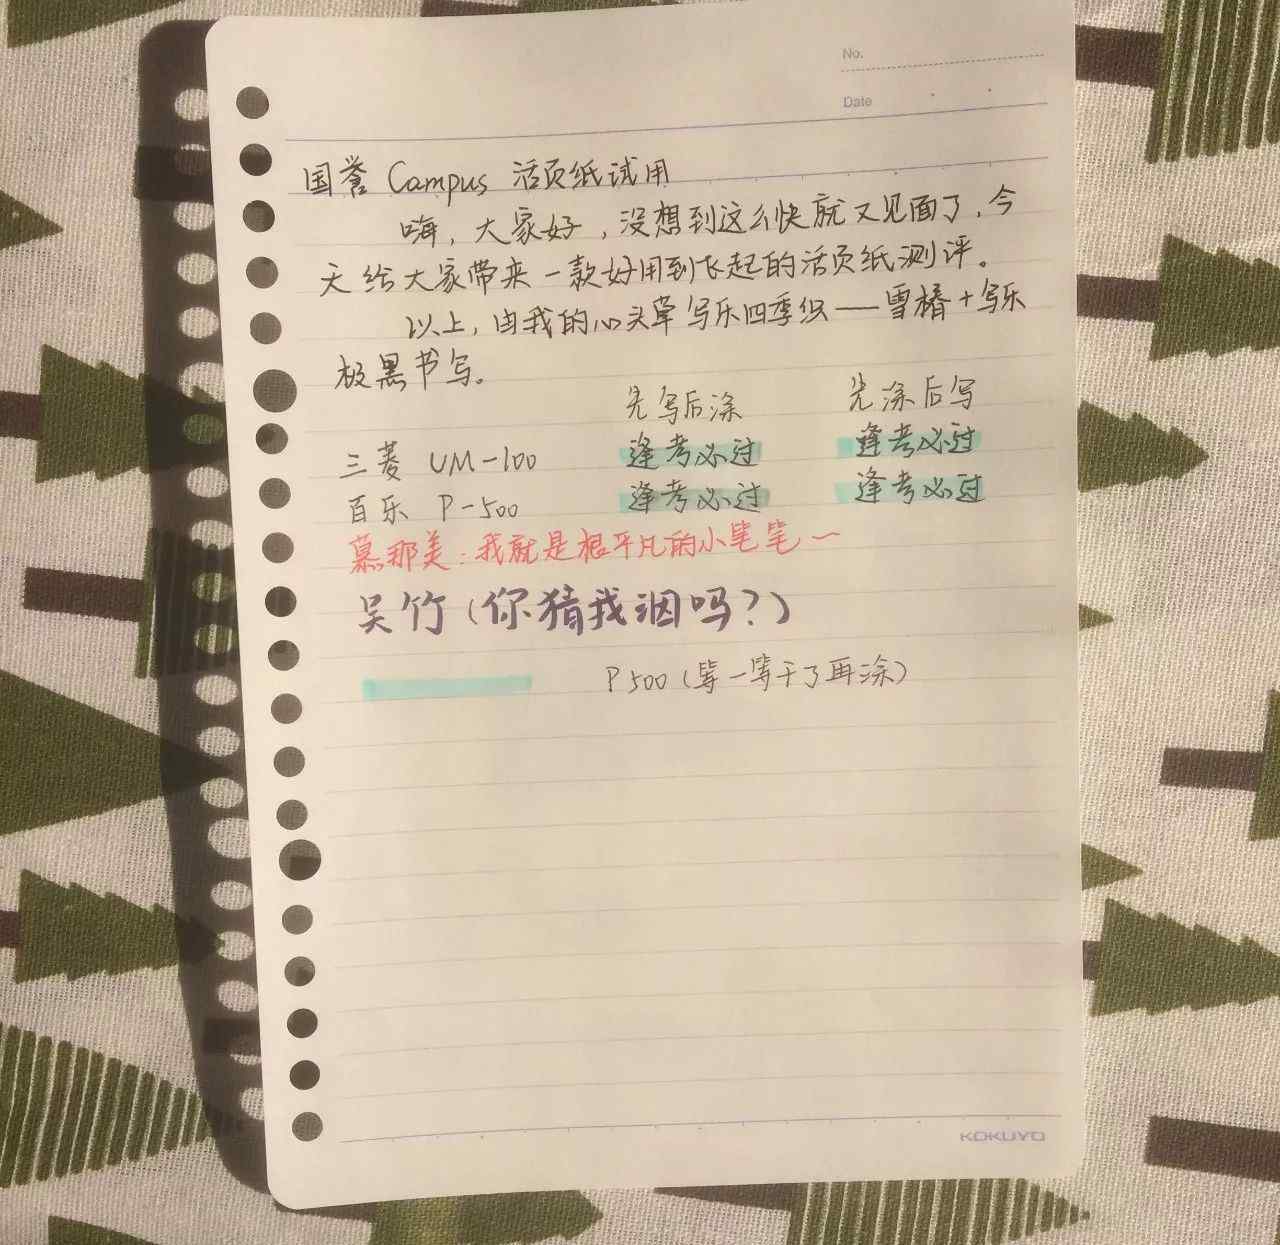 No.
Date
国誉 Campus 活页纸试用
嗨，大家好，没想到这么快就又见面了，今
天给大家带来一款好用到飞起的活页纸测评。
以上，由我的心头草写乐四季织——雪椿+写乐
极黑书写。
先写后涂 先涂后写
三菱 UM-100 逢考必过 逢考必过
百乐 P-500 逢考必过 逢考必过
慕那美：我就是根平凡的小笔笔～
吴竹（你猜我洇吗？）
P500（等一等干了再涂）
KOKUYO